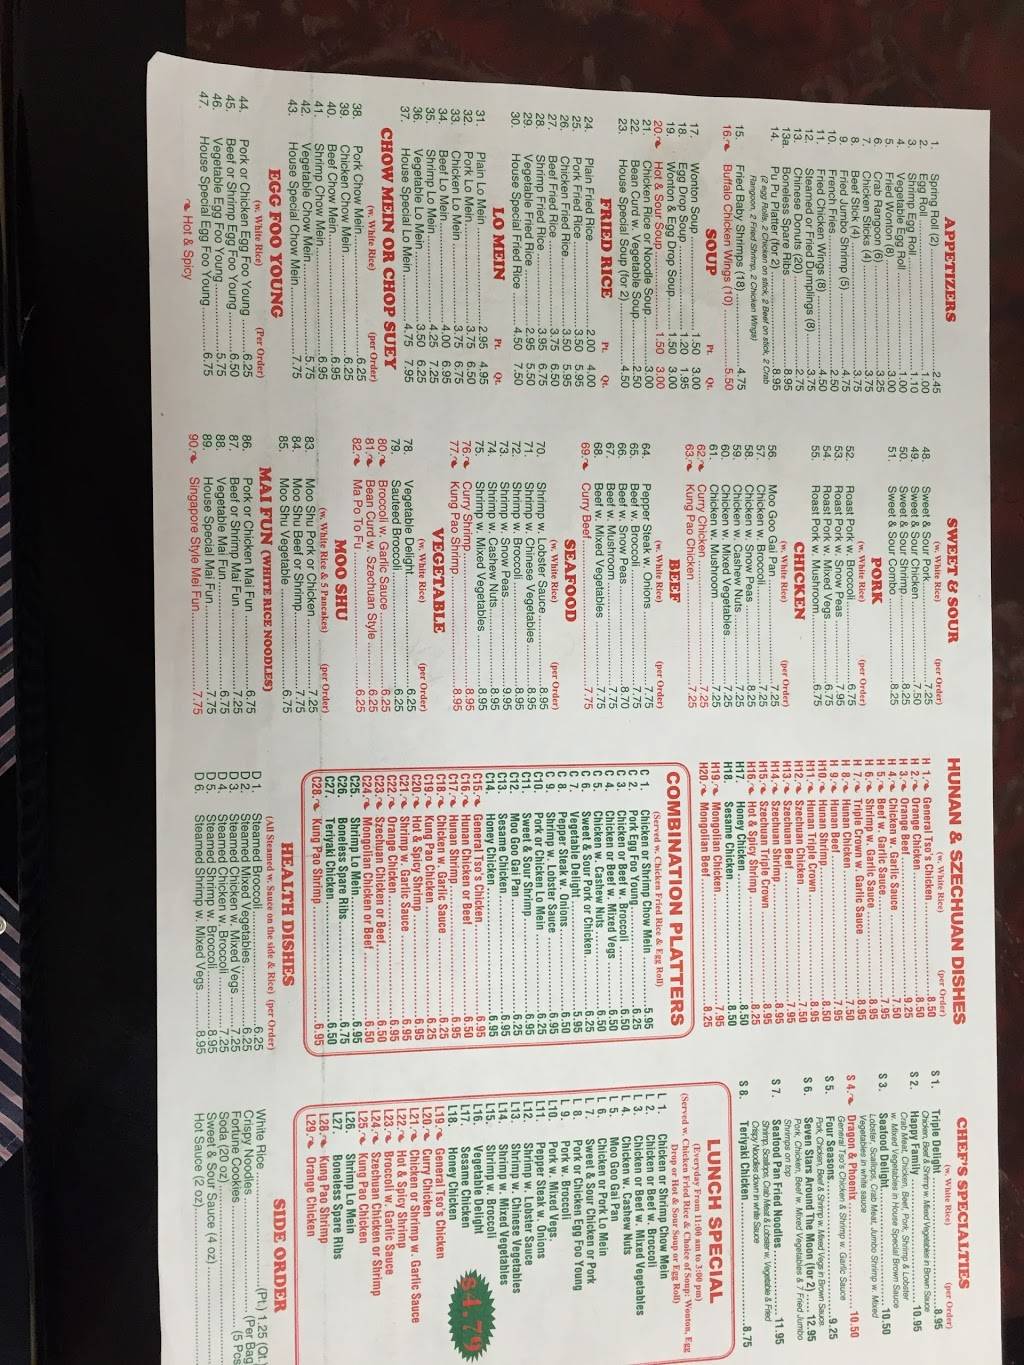 APPETIZERS
1. Spring Roll (2) 2.45
2. Egg Roll 1.00
3. Shrimp Egg Roll 1.10
4. Vegetable Egg Roll 1.00
5. Fried Wonton (8) 3.00
6. Crab Rangoon (6) 3.25
7. Chicken Sticks (4) 3.75
8. Beef Stick (4) 3.75
9. Fried Jumbo Shrimp (5) 4.75
10. French Fries 2.50
11. Fried Chicken Wings (8) 4.50
12. Steamed or Fried Dumplings (8) 3.75
13. Chinese Donuts (20) 2.75
13a. Boneless Spare Ribs 8.95
14. Pu Pu Platter (for 2) 8.95
(2 egg Rolls, 2 Chicken on stick, 2 Beef on stick, 2 Crab
Rangoon, 2 Fried Shrimp, 2 Chicken Wings)
15. Fried Baby Shrimps (18) 4.75
16. Buffalo Chicken Wings (10) 5.50
SOUP Pt. Qt.
17. Wonton Soup 1.50 3.00
18. Egg Drop Soup 1.20 1.95
19. Wonton Egg Drop Soup 1.50 3.00
20. Hot & Sour Soup 1.50 3.00
21. Chicken Rice or Noodle Soup 3.00
22. Bean Curd w. Vegetable Soup 2.50
23. House Special Soup (for 2) 4.50
FRIED RICE Pt. Qt.
24. Plain Fried Rice 2.00 4.00
25. Pork Fried Rice 3.50 5.95
26. Chicken Fried Rice 3.50 5.95
27. Beef Fried Rice 3.75 6.50
28. Shrimp Fried Rice 3.95 6.75
29. Vegetable Fried Rice 2.95 5.50
30. House Special Fried Rice 4.50 7.50
LO MEIN Pt. Qt.
31. Plain Lo Mein 2.95 4.95
32. Pork Lo Mein 3.75 6.50
33. Chicken Lo Mein 3.75 6.75
34. Beef Lo Mein 4.00 6.95
35. Shrimp Lo Mein 4.25 7.25
36. Vegetable Lo Mein 3.50 6.25
37. House Special Lo Mein 4.75 7.95
CHOW MEIN OR CHOP SUEY
(w. White Rice) (per Order)
38. Pork Chow Mein 6.25
39. Chicken Chow Mein 6.25
40. Beef Chow Mein 6.95
41. Shrimp Chow Mein 6.95
42. Vegetable Chow Mein 5.75
43. House Special Chow Mein 7.75
EGG FOO YOUNG
(w. White Rice) (Per Order)
44. Pork or Chicken Egg Foo Young 6.25
45. Beef or Shrimp Egg Foo Young 6.50
46. Vegetable Egg Foo Young 5.75
47. House Special Egg Foo Young 6.75
Hot & Spicy
SWEET & SOUR
(w. White Rice) (per Order)
48. Sweet & Sour Pork 7.25
49. Sweet & Sour Chicken 7.50
50. Sweet & Sour Shrimp 8.25
51. Sweet & Sour Combo 8.25
PORK
(w. White Rice) (per Order)
52. Roast Pork w. Broccoli 6.75
53. Roast Pork w. Snow Peas 7.95
54. Roast Pork w. Mixed Vegs 6.75
55. Roast Pork w. Mushroom 6.75
CHICKEN
(w. White Rice) (per Order)
56. Moo Goo Gai Pan 7.25
57. Chicken w. Broccoli 7.25
58. Chicken w. Snow Peas 8.25
59. Chicken w. Cashew Nuts 7.25
60. Chicken w. Mixed Vegetables 7.25
61. Chicken w. Mushroom 7.25
62. Curry Chicken 7.25
63. Kung Pao Chicken 7.25
BEEF
(w. White Rice) (per Order)
64. Pepper Steak w. Onions 7.75
65. Beef w. Broccoli 7.75
66. Beef w. Snow Peas 8.70
67. Beef w. Mushroom 7.75
68. Beef w. Mixed Vegetables 7.75
69. Curry Beef 7.75
SEAFOOD
(w. White Rice) (per Order)
70. Shrimp w. Lobster Sauce 8.95
71. Shrimp w. Chinese Vegetables 8.95
72. Shrimp w. Broccoli 8.95
73. Shrimp w. Snow Peas 9.95
74. Shrimp w. Cashew Nuts 8.95
75. Shrimp w. Mixed Vegetables 8.95
76. Curry Shrimp 8.95
77. Kung Pao Shrimp 8.95
VEGETABLE
(w. White Rice) (per Order)
78. Vegetable Delight 6.25
79. Sauteed Broccoli 6.25
80. Broccoli w. Garlic Sauce 6.25
81. Bean Curd w. Szechuan Style 6.25
82. Ma Po To Fu 6.25
MOO SHU
(w. White Rice & 5 Pancakes) (per Order)
83. Moo Shu Pork or Chicken 7.25
84. Moo Shu Beef or Shrimp 7.75
85. Moo Shu Vegetable 6.75
MAI FUN (WHITE RICE NOODLES)
86. Pork or Chicken Mai Fun 6.75
87. Beef or Shrimp Mai Fun 7.25
88. Vegetable Mai Fun 6.75
89. House Special Mai Fun 7.75
90. Singapore Style Mei Fun 7.75
HUNAN & SZECHUAN DISHES
(w. White Rice) (per Order)
H 1. General Tso's Chicken 8.50
H 2. Orange Chicken 8.50
H 3. Orange Beef 9.25
H 4. Chicken w. Garlic Sauce 7.50
H 5. Beef w. Garlic Sauce 7.95
H 6. Shrimp w. Garlic Sauce 8.95
H 7. Triple Crown w. Garlic Sauce 8.95
H 8. Hunan Chicken 7.50
H 9. Hunan Beef 7.95
H10. Hunan Shrimp 8.50
H11. Hunan Triple Crown 8.95
H12. Szechuan Chicken 7.50
H13. Szechuan Beef 7.95
H14. Szechuan Shrimp 8.95
H15. Szechuan Triple Crown 8.95
H16. Hot & Spicy Shrimp 8.25
H17. Honey Chicken 8.50
H18. Sesame Chicken 8.50
H19. Mongolian Chicken 7.95
H20. Mongolian Beef 8.25
COMBINATION PLATTERS
(Served w. Chicken Fried Rice & Egg Roll)
C 1. Chicken or Shrimp Chow Mein 5.95
C 2. Pork Egg Foo Young 6.25
C 3. Chicken or Beef w. Broccoli 6.50
C 4. Chicken or Beef w. Mixed Vegs 6.50
C 5. Chicken w. Cashew Nuts 6.50
C 6. Sweet & Sour Pork or Chicken 6.25
C 7. Vegetable Delight 5.95
C 8. Pepper Steak w. Onions 6.50
C 9. Shrimp w. Lobster Sauce 6.95
C10. Pork or Chicken Lo Mein 6.25
C11. Sweet & Sour Shrimp 6.95
C12. Moo Goo Gai Pan 6.25
C13. Sesame Chicken 6.95
C14. Honey Chicken 6.95
C15. General Tso's Chicken 6.95
C16. Hunan Chicken or Beef 6.50
C17. Hunan Shrimp 6.95
C18. Chicken w. Garlic Sauce 6.25
C19. Kung Pao Chicken 6.25
C20. Hot & Spicy Shrimp 6.95
C21. Shrimp w. Garlic Sauce 6.95
C22. Orange Chicken 6.95
C23. Szechuan Chicken or Beef 6.50
C24. Mongolian Chicken or Beef 6.50
C25. Shrimp Lo Mein 6.95
C26. Boneless Spare Ribs 6.75
C27. Teriyaki Chicken 6.50
C28. Kung Pao Shrimp 6.95
HEALTH DISHES
(All Steamed w. Sauce on the side & Rice) (per Order)
D 1. Steamed Broccoli 6.25
D 2. Steamed Mixed Vegetables 6.25
D 3. Steamed Chicken w. Mixed Vegs 7.25
D 4. Steamed Chicken w. Broccoli 7.25
D 5. Steamed Shrimp w. Broccoli 8.95
D 6. Steamed Shrimp w. Mixed Vegs 8.95
CHEF'S SPECIALTIES
(w. White Rice) (per Order)
S 1. Triple Delight 8.95
Chicken, Beef & Shrimp w. Mixed Vegetables in Brown Sauce
S 2. Happy Family 10.95
Crab Meat, Chicken, Beef, Pork, Shrimp & Lobster
w. Mixed Vegetables in House Special Brown Sauce
S 3. Seafood Delight 10.50
Lobster, Scallops, Crab Meat, Jumbo Shrimp w. Mixed
Vegetables in white sauce
S 4. Dragon & Phoenix 10.50
General Tso's Chicken & Shrimp w. Garlic Sauce
S 5. Four Seasons 9.25
Pork, Chicken, Beef & Shrimp w. Mixed Vegs in Brown Sauce
S 6. Seven Stars Around The Moon (for 2) 12.95
Pork, Chicken, Beef w. Mixed Vegetables & 7 Fried Jumbo
Shrimps on top
S 7. Seafood Pan Fried Noodles 11.95
Shrimp, Scallops, Crab Meat & Lobster w. Vegetable & Fried
Crispy Noodles down in white Sauce
S 8. Teriyaki Chicken 8.75
LUNCH SPECIAL
(Everyday From 11:00 am to 3:00 pm)
(Served w. Chicken Fried Rice & Choice of Soup: Wonton, Egg
Drop or Hot & Sour Soup or Egg Roll)
L 1. Chicken or Shrimp Chow Mein
L 2. Chicken or Beef w. Broccoli
L 3. Chicken or Beef w. Mixed Vegetables
L 4. Chicken w. Cashew Nuts
L 5. Moo Goo Gai Pan
L 6. Chicken or Pork Lo Mein
L 7. Sweet & Sour Chicken or Pork
L 8. Pork or Chicken Egg Foo Young
L 9. Pork w. Broccoli
L10. Pork w. Mixed Vegs.
L11. Pepper Steak w. Onions
L12. Shrimp w. Lobster Sauce
L13. Shrimp w. Chinese Vegetables
L14. Shrimp w. Mixed Vegetables
L15. Shrimp w. Broccoli
L16. Vegetable Delight
L17. Sesame Chicken
L18. Honey Chicken
L19. General Tso's Chicken
L20. Curry Chicken
L21. Chicken or Shrimp w. Garlic Sauce
L22. Hot & Spicy Shrimp
L23. Broccoli w. Garlic Sauce
L24. Szechuan Chicken or Shrimp
L25. Kung Pao Chicken
L26. Shrimp Lo Mein
L27. Boneless Spare Ribs
L28. Kung Pao Shrimp
L29. Orange Chicken
$4.79
SIDE ORDER
White Rice (Pt.) 1.25 (Qt.)
Crispy Noodles (Per Bag
Fortune Cookies (5 Pcs
Soda (20 oz)
Sweet & Sour Sauce (4 oz)
Hot Sauce (2 oz)